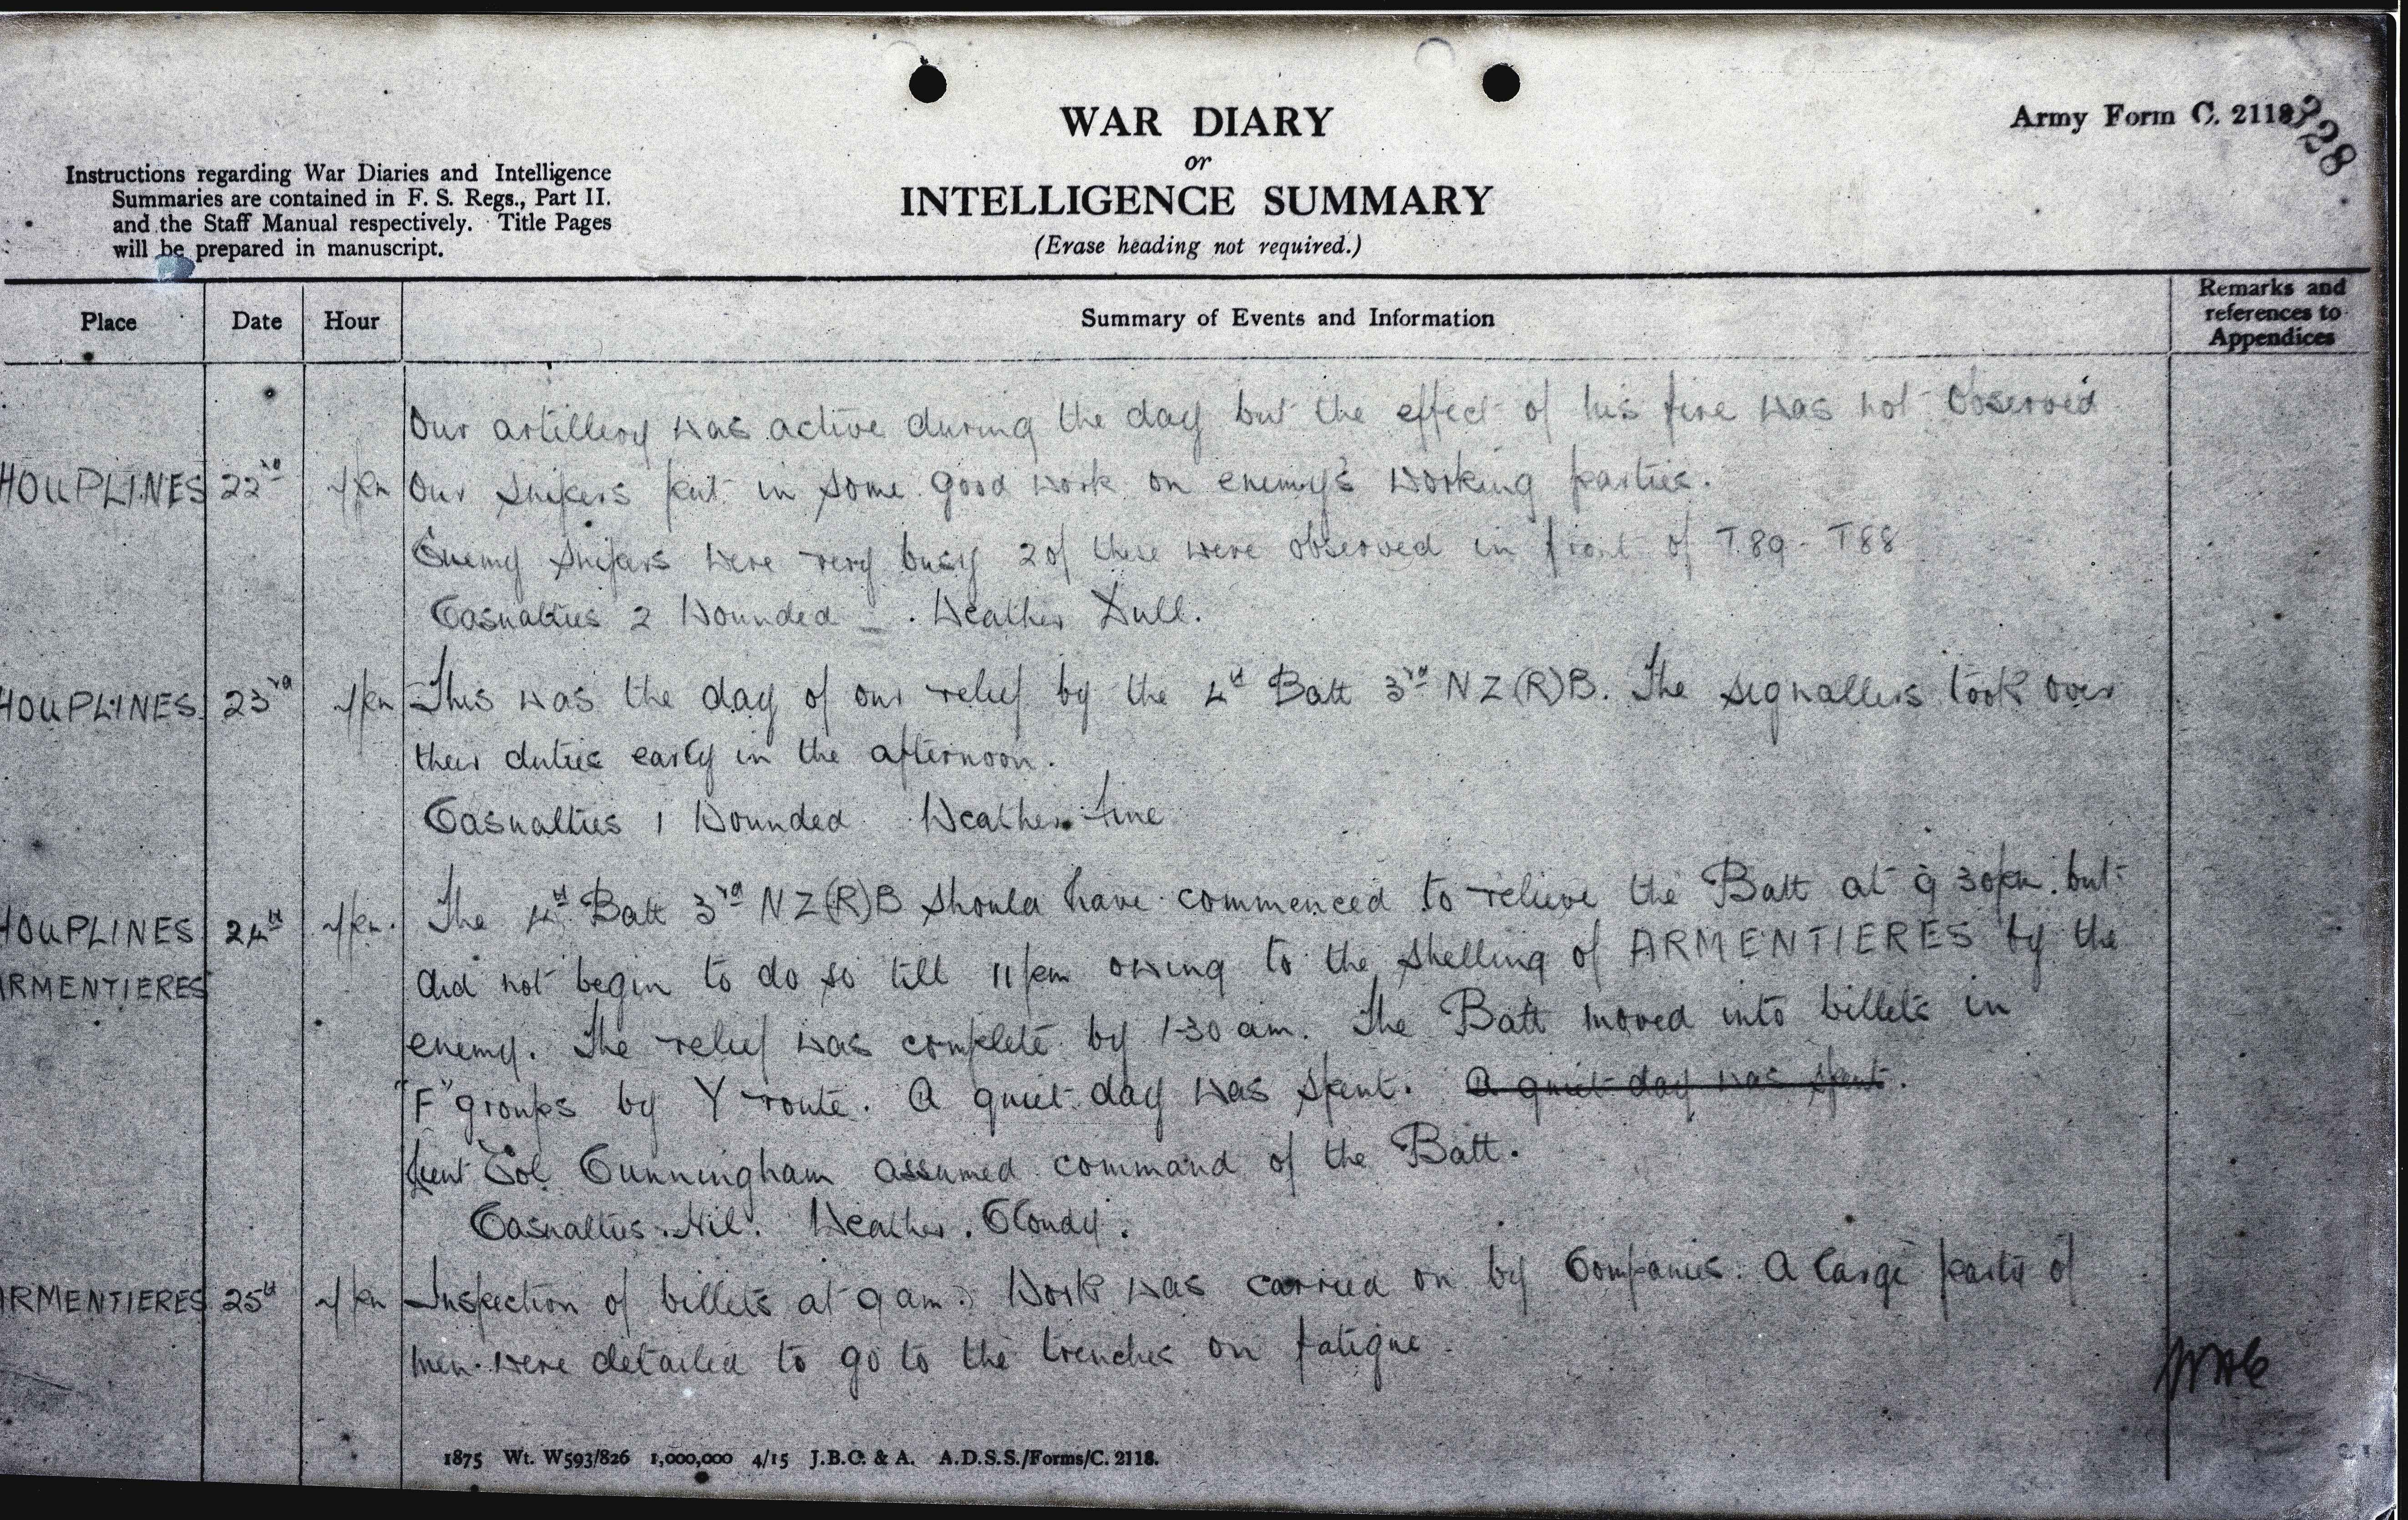 WAR DIARY
or
INTELLIGENCE SUMMARY
(Erase heading not required.)
Army Form C. 2118
228
Instructions regarding War Diaries and Intelligence
Summaries are contained in F. S. Regs., Part II.
and the Staff Manual respectively. Title Pages
will be prepared in manuscript.
Place Date Hour Summary of Events and Information Remarks and
references to
Appendices
Our artillery was active during the day but the effect of his fire was not observed
HOUPLINES 22nd pm Our snipers put in some good work on enemy's working parties.
Enemy snipers were very busy 2 of these were observed in front of T.89 - T88
Casualties 2 Wounded - . Weather Dull.
HOUPLINES 23rd pm This was the day of our relief by the 4th Batt 3rd NZ(R)B. The signallers took over
their duties early in the afternoon.
Casualties 1 Wounded Weather Fine
HOUPLINES 24th pm. The 4th Batt 3rd NZ(R)B should have commenced to relieve the Batt at 9 30pm. but
ARMENTIERES did not begin to do so till 11pm owing to the shelling of ARMENTIERES by the
enemy. The relief was complete by 1-30 am. The Batt moved into billets in
"F" groups by Y route. A quiet day was spent. A quiet day was spent.
Lieut Col Cunningham assumed command of the Batt.
Casualties. Nil. Weather. Cloudy.
ARMENTIERES 25th pm Inspection of billets at 9 am. Work was carried on by Companies. A large party of
men were detailed to go to the trenches on fatigue.
1875 Wt. W593/826 1,000,000 4/15 J.B.C. & A. A.D.S.S./Forms/C. 2118.